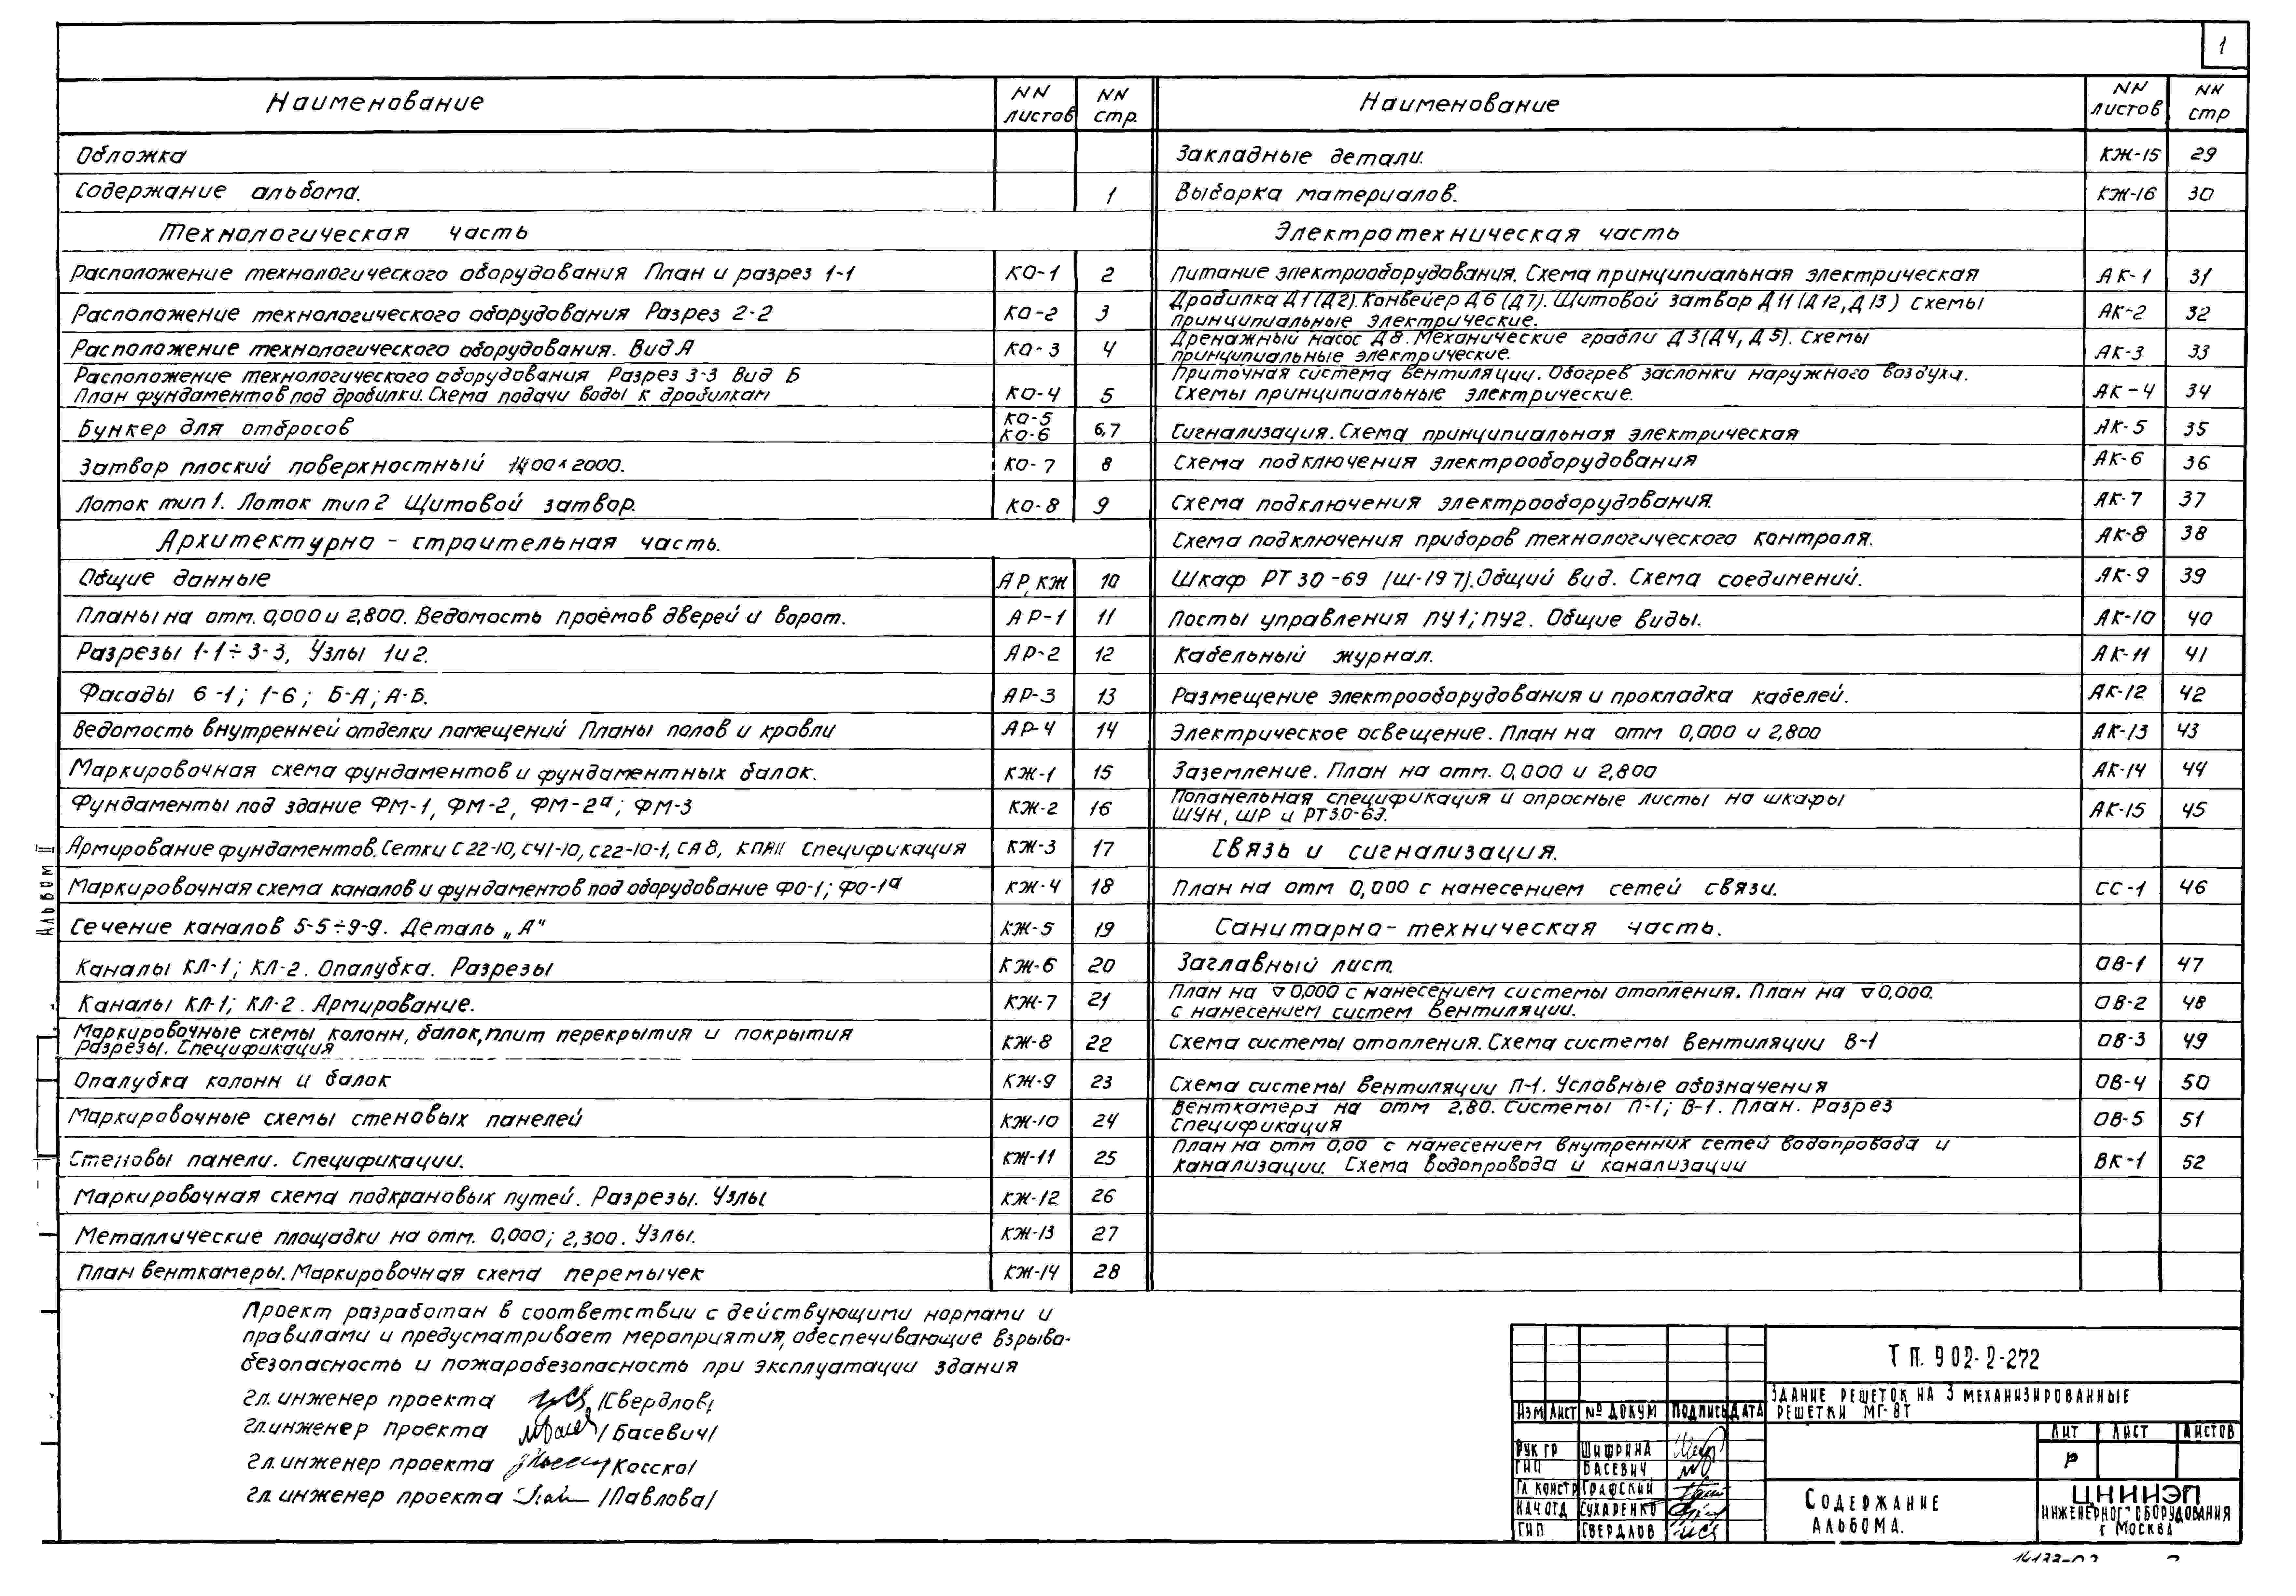 1
Наименование NN листов NN стр.
Обложка
Содержание альбома. 1
Технологическая часть
Расположение технологического оборудования План и разрез 1-1 КО-1 2
Расположение технологического оборудования Разрез 2-2 КО-2 3
Расположение технологического оборудования. Вид А КО-3 4
Расположение технологического оборудования Разрез 3-3 Вид Б
План фундаментов под дробилки. Схема подачи воды к дробилкам КО-4 5
Бункер для отбросов КО-5 КО-6 6,7
Затвор плоский поверхностный 1400×2000. КО-7 8
Лоток тип 1. Лоток тип 2 Щитовой затвор. КО-8 9
Архитектурно - строительная часть.
Общие данные АР, КЖ 10
Планы на отм. 0,000 и 2,800. Ведомость проёмов дверей и ворот. АР-1 11
Разрезы 1-1÷3-3, Узлы 1 и 2. АР-2 12
Фасады 6-1; 1-6; Б-А; А-Б. АР-3 13
Ведомость внутренней отделки помещений Планы полов и кровли АР-4 14
Маркировочная схема фундаментов и фундаментных балок. КЖ-1 15
Фундаменты под здание ФМ-1, ФМ-2, ФМ-2а; ФМ-3 КЖ-2 16
Армирование фундаментов. Сетки С22-10, С41-10, С22-10-1, СА8, КПАII Спецификация КЖ-3 17
Маркировочная схема каналов и фундаментов под оборудование ФО-1; ФО-1а КЖ-4 18
Сечение каналов 5-5÷9-9. Деталь „А" КЖ-5 19
Каналы КЛ-1; КЛ-2. Опалубка. Разрезы КЖ-6 20
Каналы КЛ-1; КЛ-2. Армирование. КЖ-7 21
Маркировочные схемы колонн, балок, плит перекрытия и покрытия
Разрезы. Спецификация КЖ-8 22
Опалубка колонн и балок КЖ-9 23
Маркировочные схемы стеновых панелей КЖ-10 24
Стеновы панели. Спецификации. КЖ-11 25
Маркировочная схема подкрановых путей. Разрезы. Узлы КЖ-12 26
Металлические площадки на отм. 0,000; 2,300. Узлы. КЖ-13 27
План венткамеры. Маркировочная схема перемычек КЖ-14 28
Наименование NN листов NN стр
Закладные детали. КЖ-15 29
Выборка материалов. КЖ-16 30
Электротехническая часть
Питание электрооборудования. Схема принципиальная электрическая АК-1 31
Дробилка Д1 (Д2). Конвейер Д6 (Д7). Щитовой затвор Д11 (Д12, Д13) Схемы
принципиальные электрические. АК-2 32
Дренажный насос Д8. Механические грабли Д3(Д4, Д5). Схемы
принципиальные электрические. АК-3 33
Приточная система вентиляции. Обогрев заслонки наружного воздуха.
Схемы принципиальные электрические. АК-4 34
Сигнализация. Схема принципиальная электрическая АК-5 35
Схема подключения электрооборудования АК-6 36
Схема подключения электрооборудования. АК-7 37
Схема подключения приборов технологического контроля. АК-8 38
Шкаф РТ 30-69 (Ш-197). Общий вид. Схема соединений. АК-9 39
Посты управления ПУ1; ПУ2. Общие виды. АК-10 40
Кабельный журнал. АК-11 41
Размещение электрооборудования и прокладка кабелей. АК-12 42
Электрическое освещение. План на отм 0,000 и 2,800 АК-13 43
Заземление. План на отм. 0,000 и 2,800 АК-14 44
Попанельная спецификация и опросные листы на шкафы
ШУН, ШР и РТ30-69. АК-15 45
Связь и сигнализация.
План на отм 0,000 с нанесением сетей связи. СС-1 46
Санитарно-техническая часть.
Заглавный лист. ОВ-1 47
План на ▽0,000 с нанесением системы отопления. План на ▽0,000.
с нанесением систем вентиляции. ОВ-2 48
Схема системы отопления. Схема системы вентиляции В-1 ОВ-3 49
Схема системы вентиляции П-1. Условные обозначения ОВ-4 50
Венткамера на отм 2,80. Системы П-1; В-1. План. Разрез
Спецификация ОВ-5 51
План на отм 0,00 с нанесением внутренних сетей водопровода и
канализации. Схема водопровода и канализации ВК-1 52
Альбом II
Проект разработан в соответствии с действующими нормами и
правилами и предусматривает мероприятия, обеспечивающие взрыво-
безопасность и пожаробезопасность при эксплуатации здания
гл. инженер проекта /Свердлов/
гл. инженер проекта /Басевич/
гл. инженер проекта /Косско/
гл. инженер проекта /Павлова/
Т П. 902-2-272
Здание решеток на 3 механизированные
решетки МГ-8Т
Изм Лист № докум Подпись Дата
Рук гр Шифрина
ГИП Басевич
Гл констр Графский
Нач отд Сухаренко
ГИП Свердлов
Лит Лист Листов
Р
Содержание
альбома.
ЦНИИЭП
инженерног оборудования
г Москва